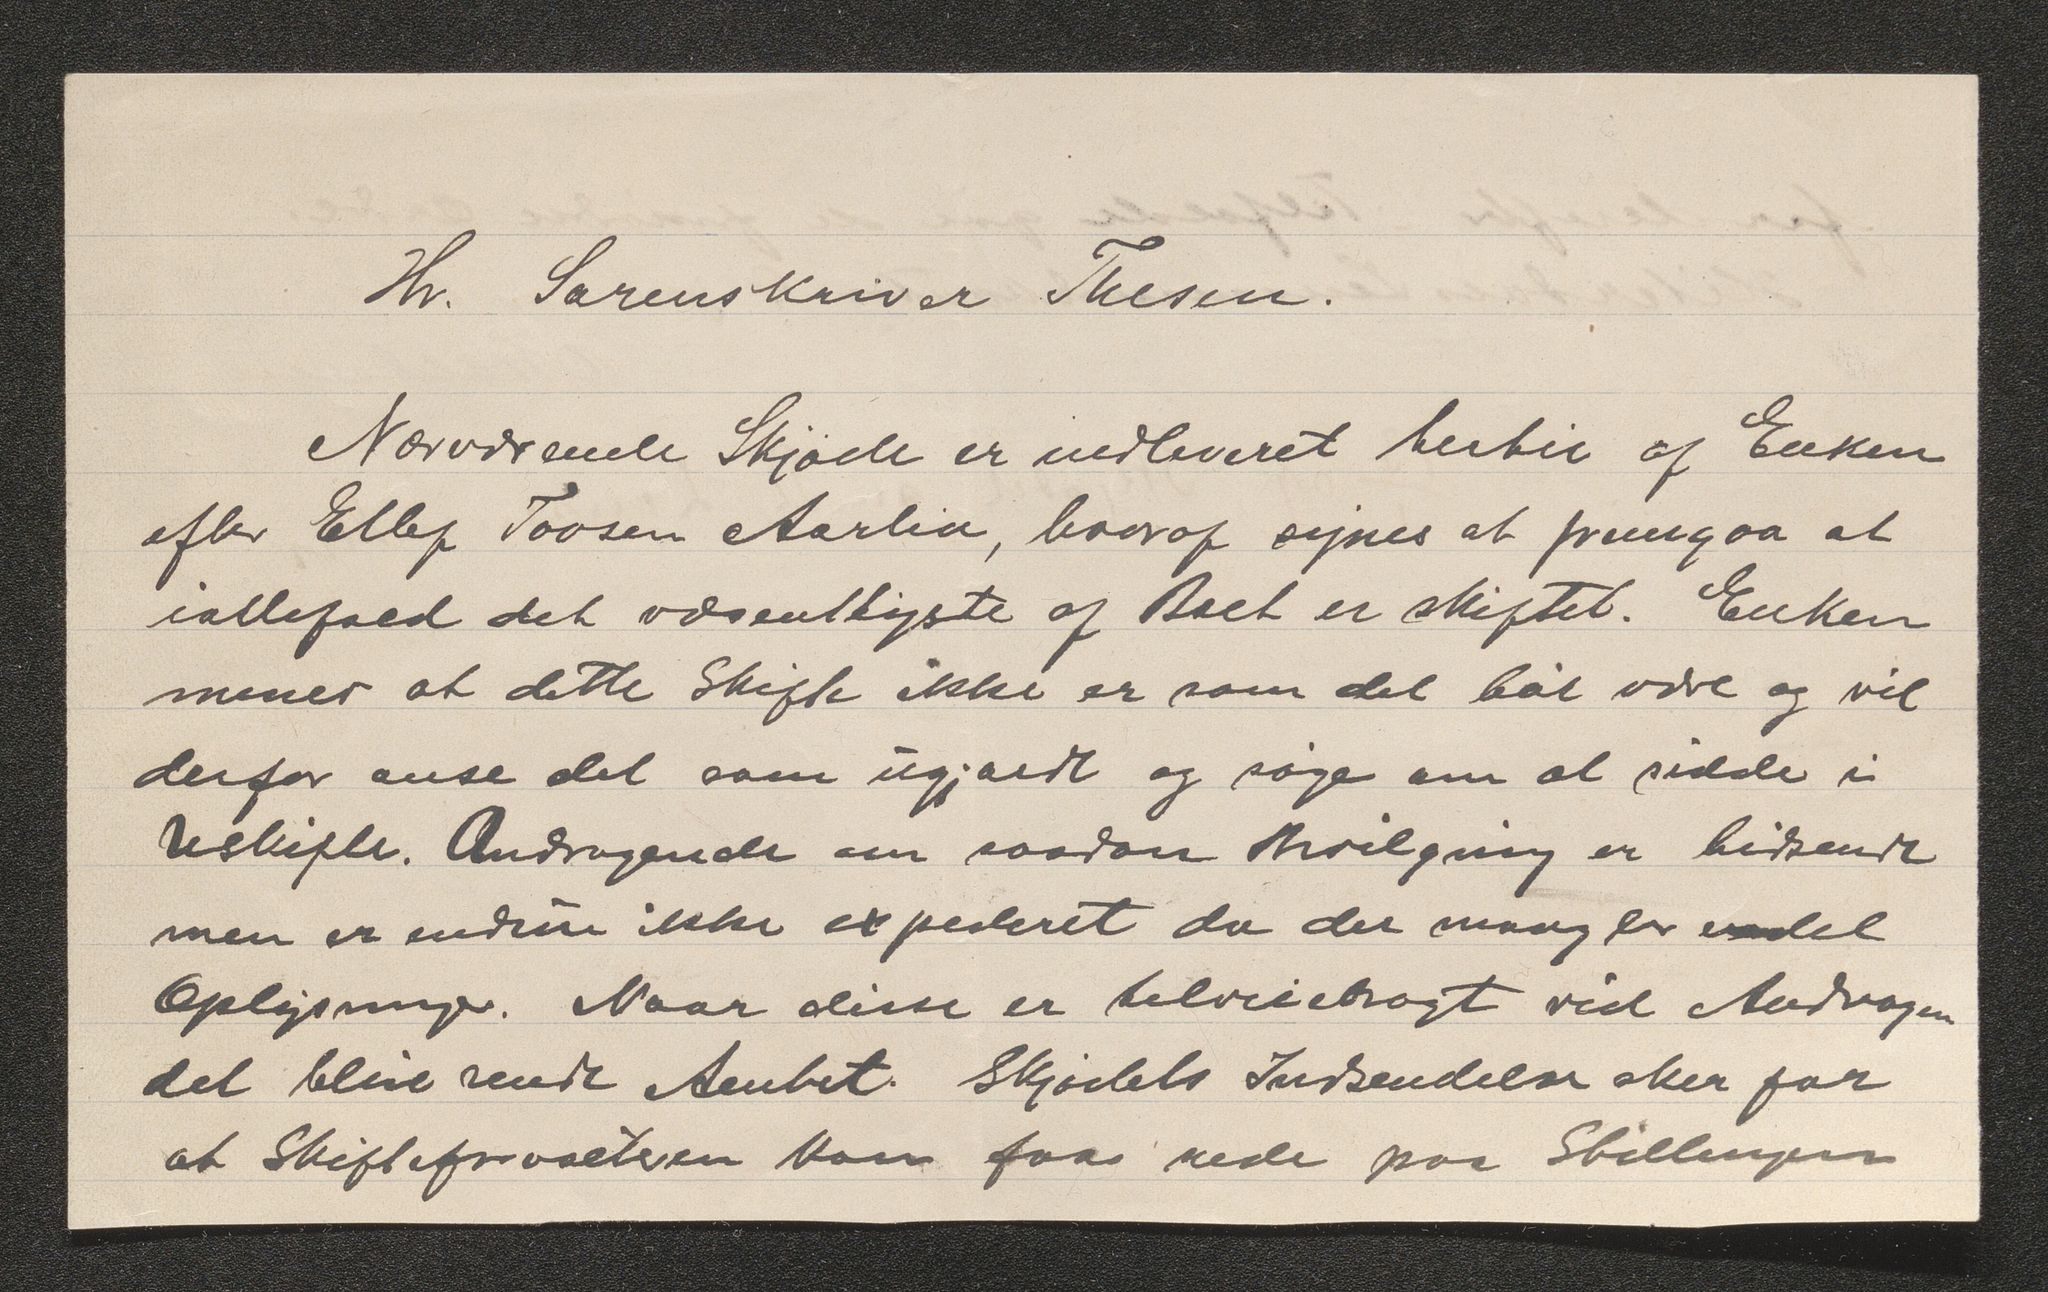 Hr. Sorenskriver Thesen.
Nærværende Skjøde er indleveret hertil af Enken
efter Ellef Tovsen Aarlien, hvoraf synes at fremgaa at
iallefald det væsentligste af Boet er skiftet. Enken
mener at dette Skifte ikke er som det bør være og vil
derfor anse det som ugjordt og søge om at sidde i
Uskifte. Andragende om saadan Bevilgning er hidsendt
men er endnu ikke expederet da der mangler endel
Oplysninger. Naar disse er tilveiebragt vil Andragen
det blive sendt Amtet. Skjødets Indsendelse sker for
at Skifteforvalteren kan faa rede paa Stillingen